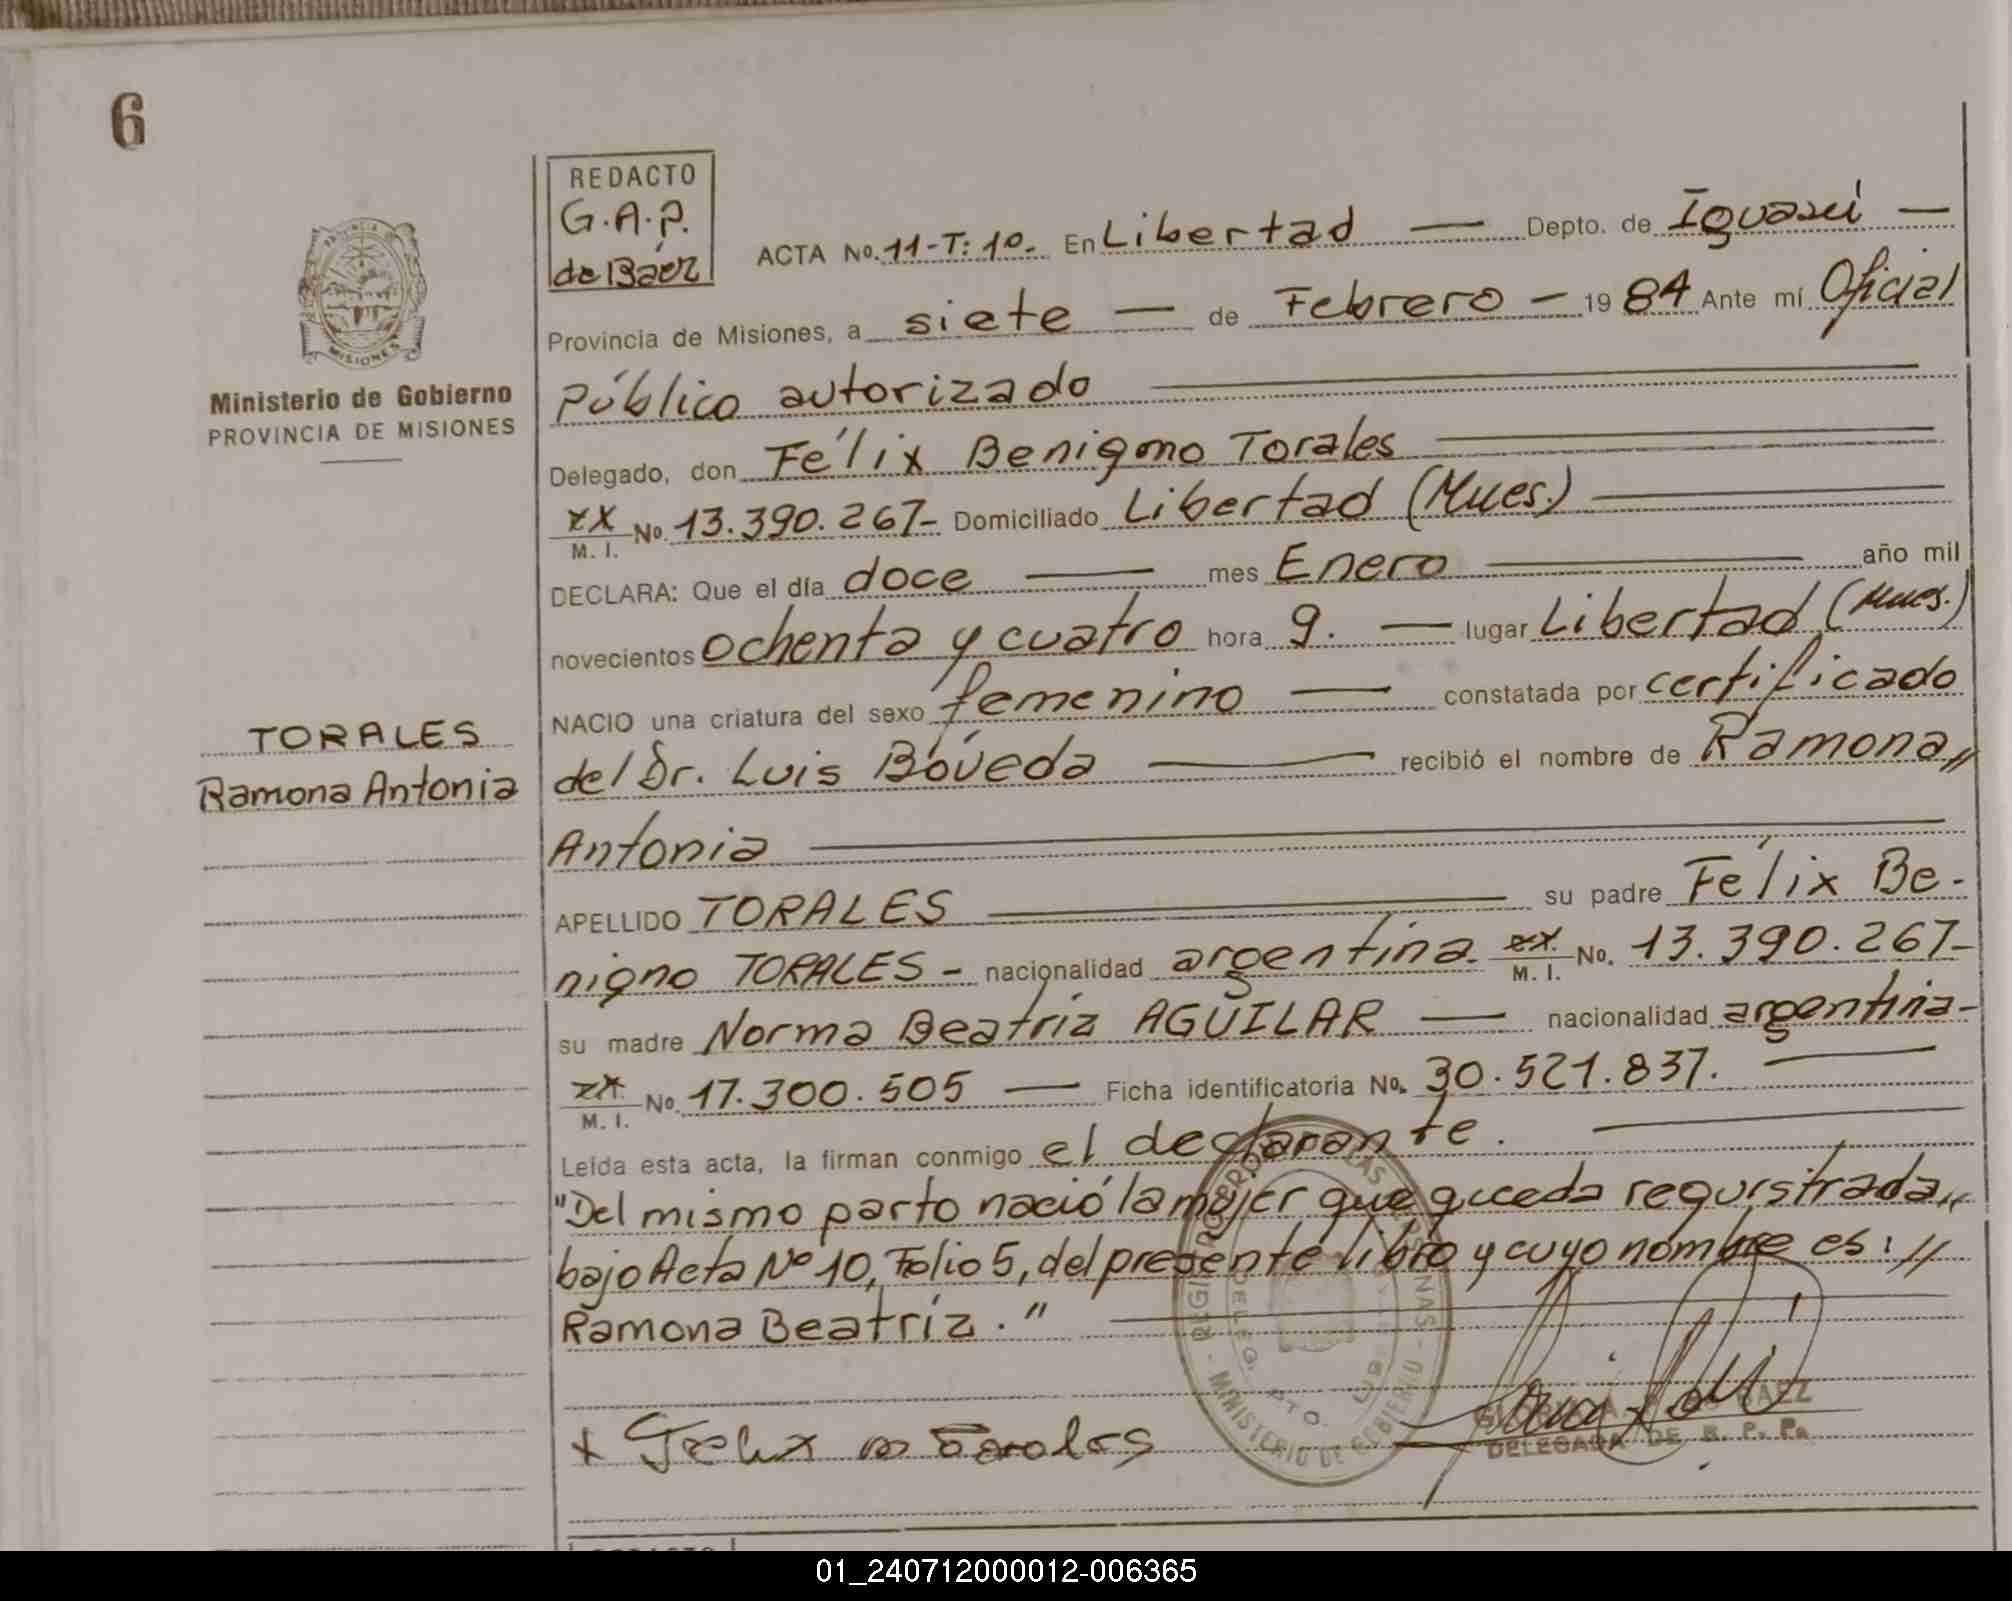 6
REDACTO
G.A.P.
de Báez
ACTA No. 11-T: 1º.- En Libertad — Depto. de Iguasú —
Provincia de Misiones, a siete — de Febrero — 19 84 Ante mí Oficial
Público autorizado
Delegado, don Félix Benigno Torales
xx M. I. No. 13.390.267- Domiciliado Libertad (Mnes.)
DECLARA: Que el día doce — mes Enero — año mil
novecientos ochenta y cuatro hora 9. — lugar Libertad (Mnes.)
NACIO una criatura del sexo femenino — constatada por certificado
del Dr. Luis Bóveda — recibió el nombre de Ramona,,
Antonia
APELLIDO TORALES — su padre Félix Be-
nigno TORALES - nacionalidad argentina. xx. M. I. No. 13.390.267-
su madre Norma Beatríz AGUILAR — nacionalidad argentina-
xx. M. I. No. 17.300.505 — Ficha identificatoria No. 30.521.837. —
Leída esta acta, la firman conmigo el declarante.
"Del mismo parto nació la mujer que queda reguistrada,,
bajo Acta Nº 10, Folio 5, del presente libro y cuyo nombre es: //
Ramona Beatríz."
x Felix B Torales
BAEZ
DELEGADA DE R. P. Pa
REGISTRO PROV. DE LAS PERSONAS - MINISTERIO DE GOBIERNO -
MISIONES
Ministerio de Gobierno
PROVINCIA DE MISIONES
TORALES
Ramona Antonia
01_240712000012-006365